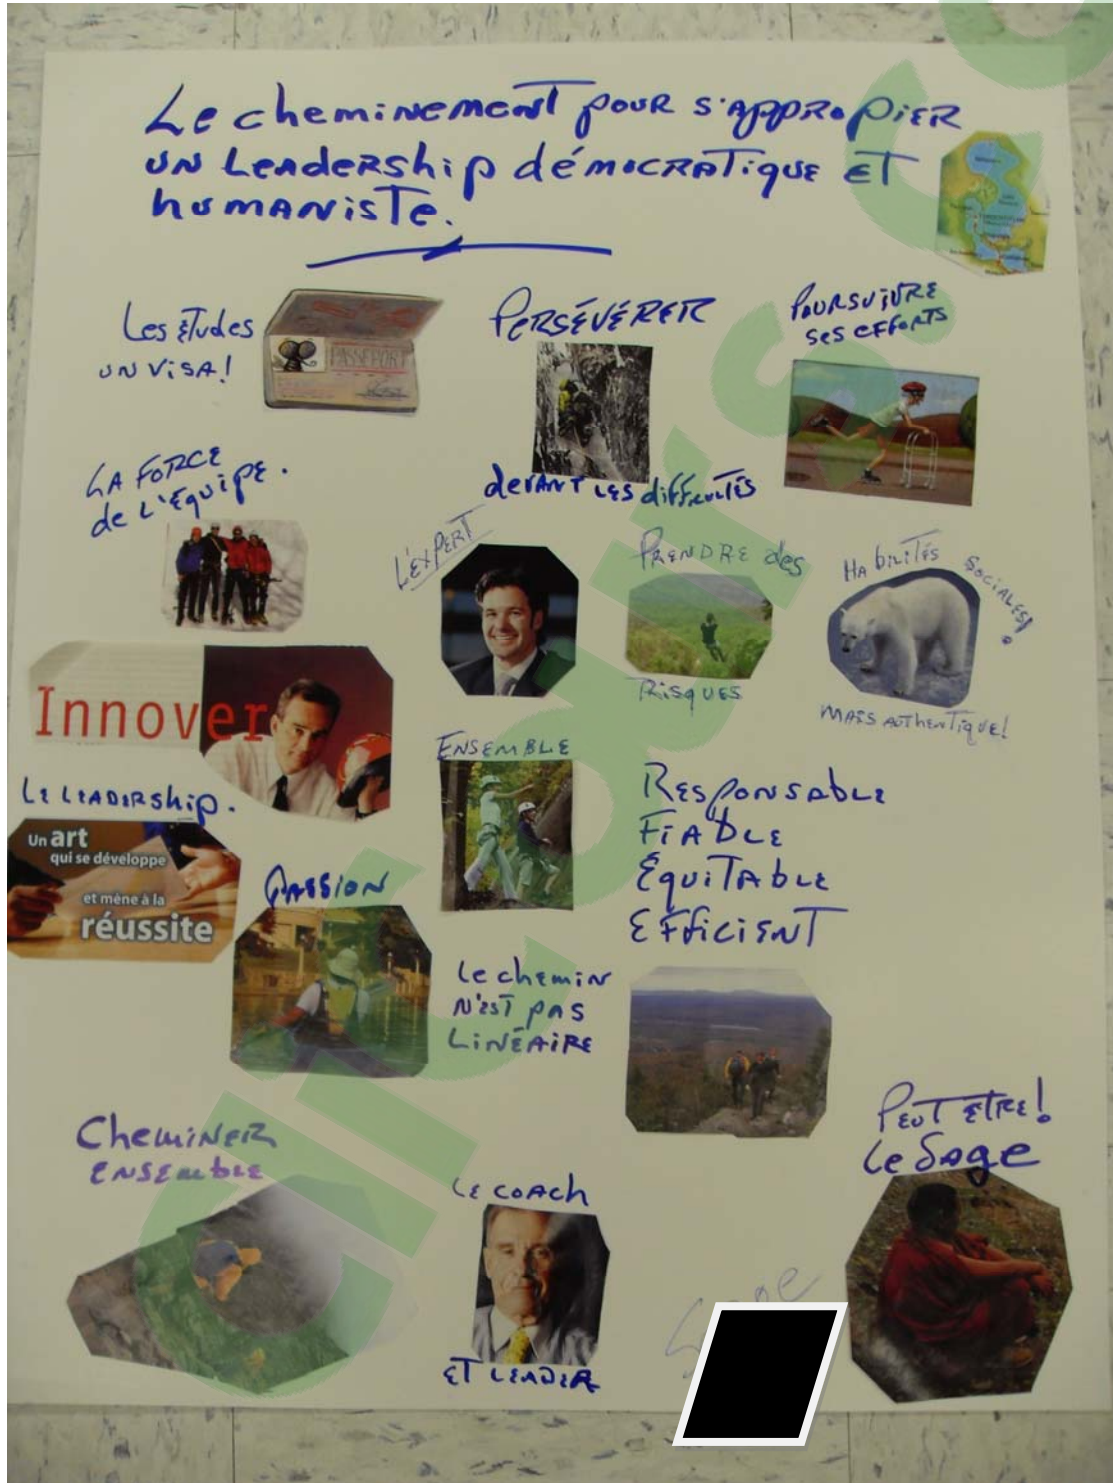 Le cheminement pour s'appropier
un Leadership démocratique et
humaniste.
Les études
un visa!
PASSEPORT
Persévérer
devant les difficultés
Poursuivre
ses efforts
La force
de l'équipe.
L'expert
Prendre des
Risques
Habilités sociales!
mais authentique!
Innover
Le Leadership.
Un art
qui se développe
et mène à la
réussite
Ensemble
Responsable
Fiable
Équitable
Efficient
Passion
Le chemin
n'est pas
linéaire
Cheminer
ensemble
Le coach
et leader
Peut etre!
Le Sage